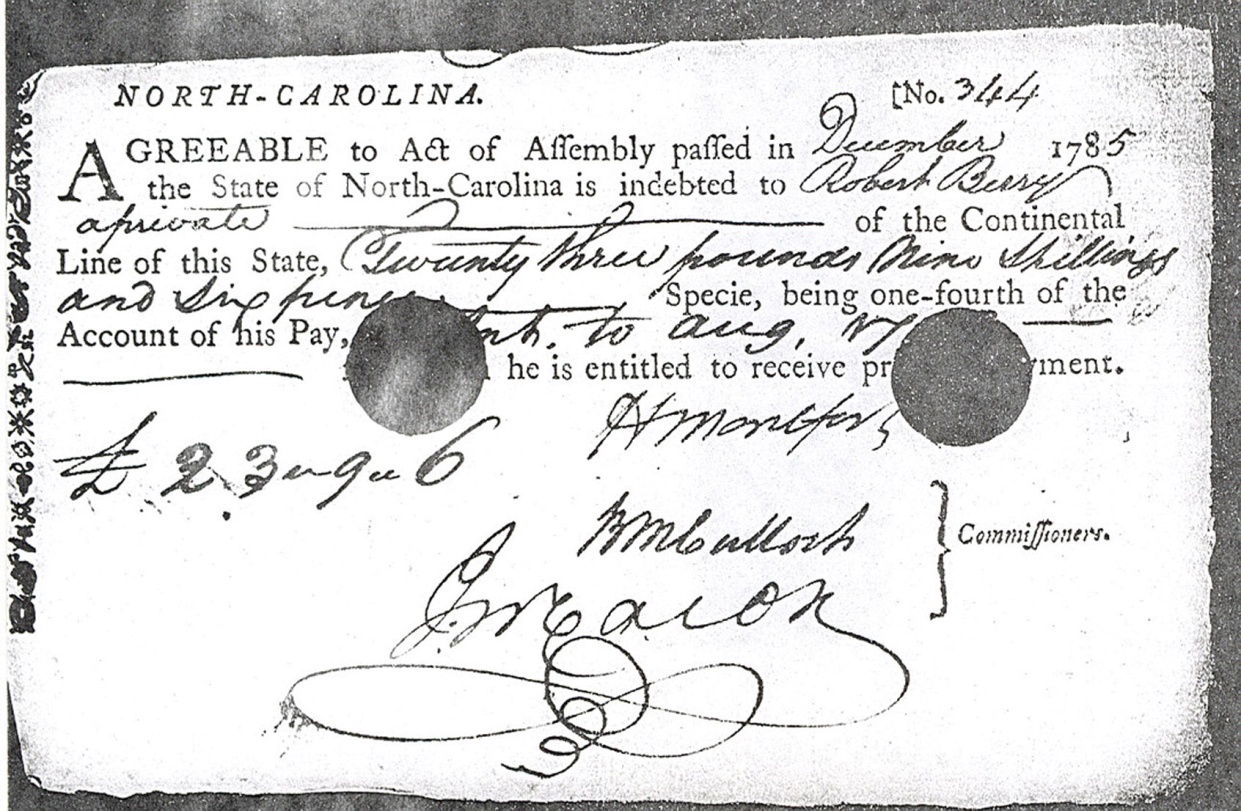 NORTH-CAROLINA. [No. 344
AGREEABLE to Act of Aſſembly paſſed in December 1785
the State of North-Carolina is indebted to Robert Berry
a private of the Continental
Line of this State, Twenty three pounds Nine Shillings
and Six pence Specie, being one-fourth of the
Account of his Pay, Int. to Aug, 17
he is entitled to receive pr yment.
HMontfort
£ 23 „ 9 „ 6
BMcCulloch
Commiſſioners.